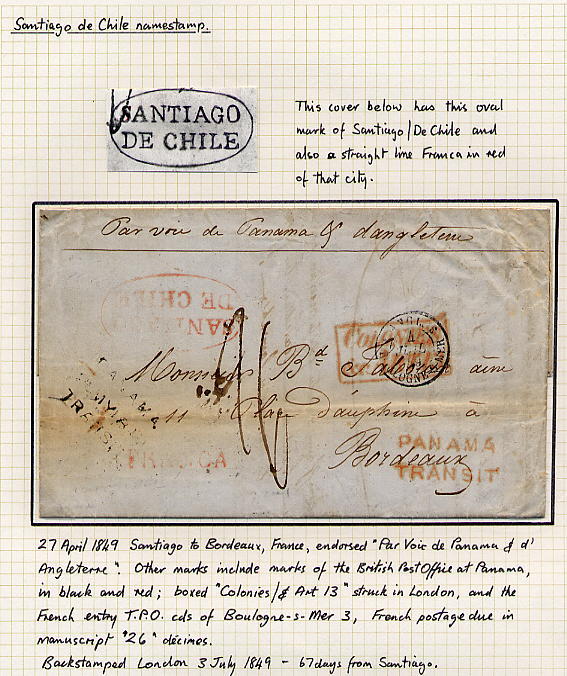 Santiago de Chile namestamp.
SANTIAGO
DE CHILE
This cover below has this oval
mark of Santiago/De Chile and
also a straight line Franca in red
of that city.
Par voie de Panama & d'angleterre
SANTIAGO
DE CHILE
COLONIES
Monsieur Bd ainé
11 Place dauphine à
Bordeaux
PANAMA
TRANSIT
FRANCA
PANAMA
TRANSIT
27 April 1849 Santiago to Bordeaux, France, endorsed "Par Voie de Panama & d'
Angleterre". Other marks include marks of the British Post Office at Panama,
in black and red; boxed "Colonies/& Art 13" struck in London, and the
French entry T.P.O. cds of Boulogne-s-Mer 3, French postage due in
manuscript "26" décimes.
Backstamped London 3 July 1849 - 67 days from Santiago.